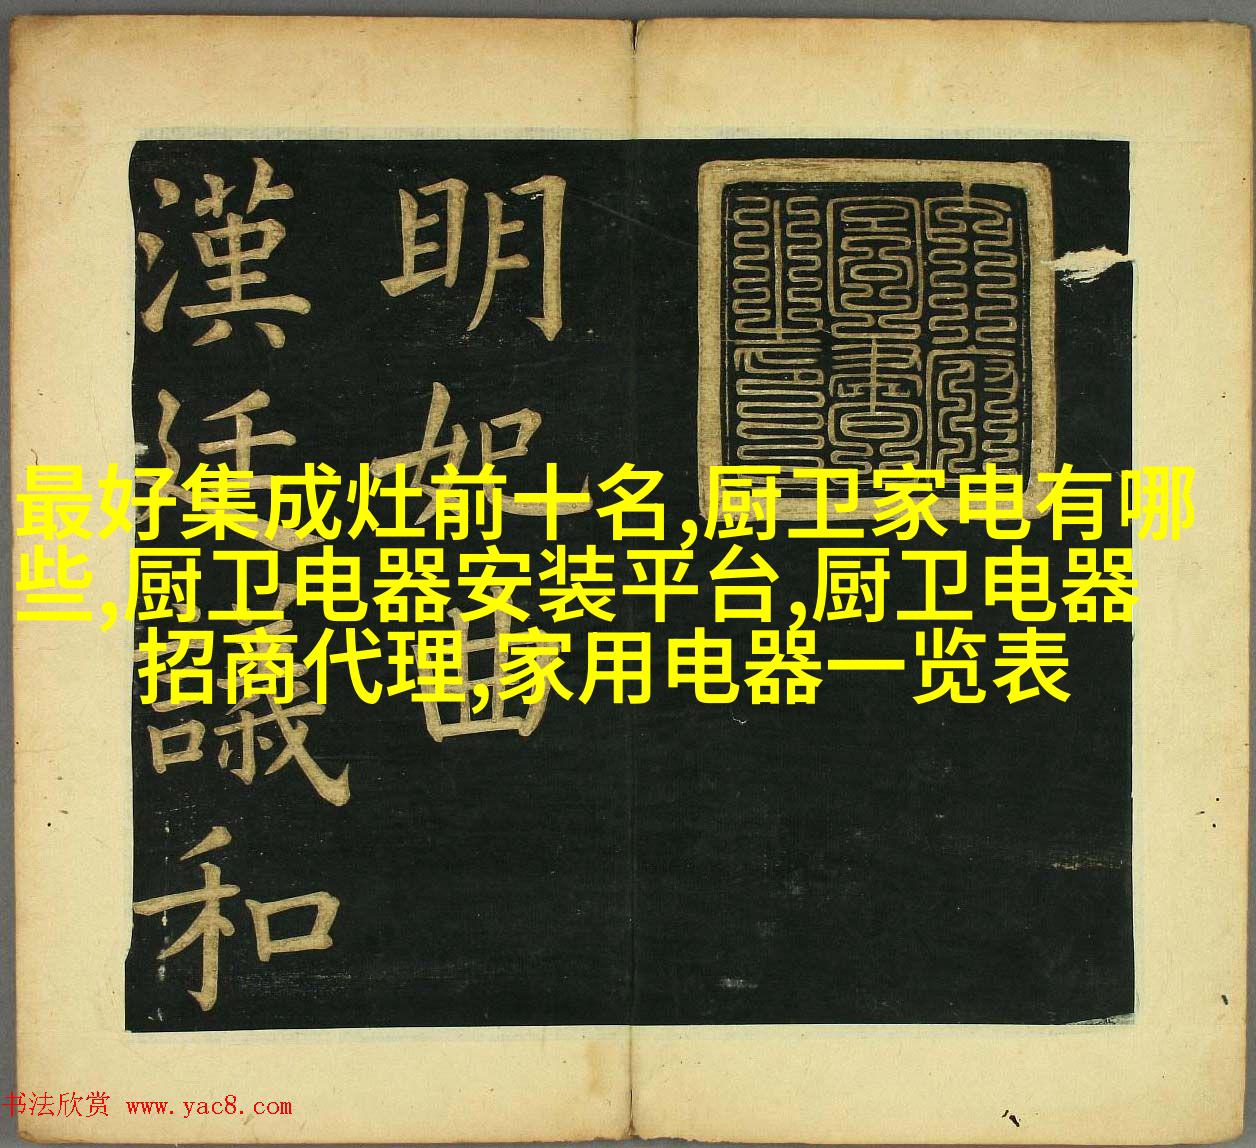 明妃曲
漢廷議和
最好集成灶前十名,厨卫家电有哪
些,厨卫电器安装平台,厨卫电器
招商代理,家用电器一览表
书法欣赏 www.yac8.com